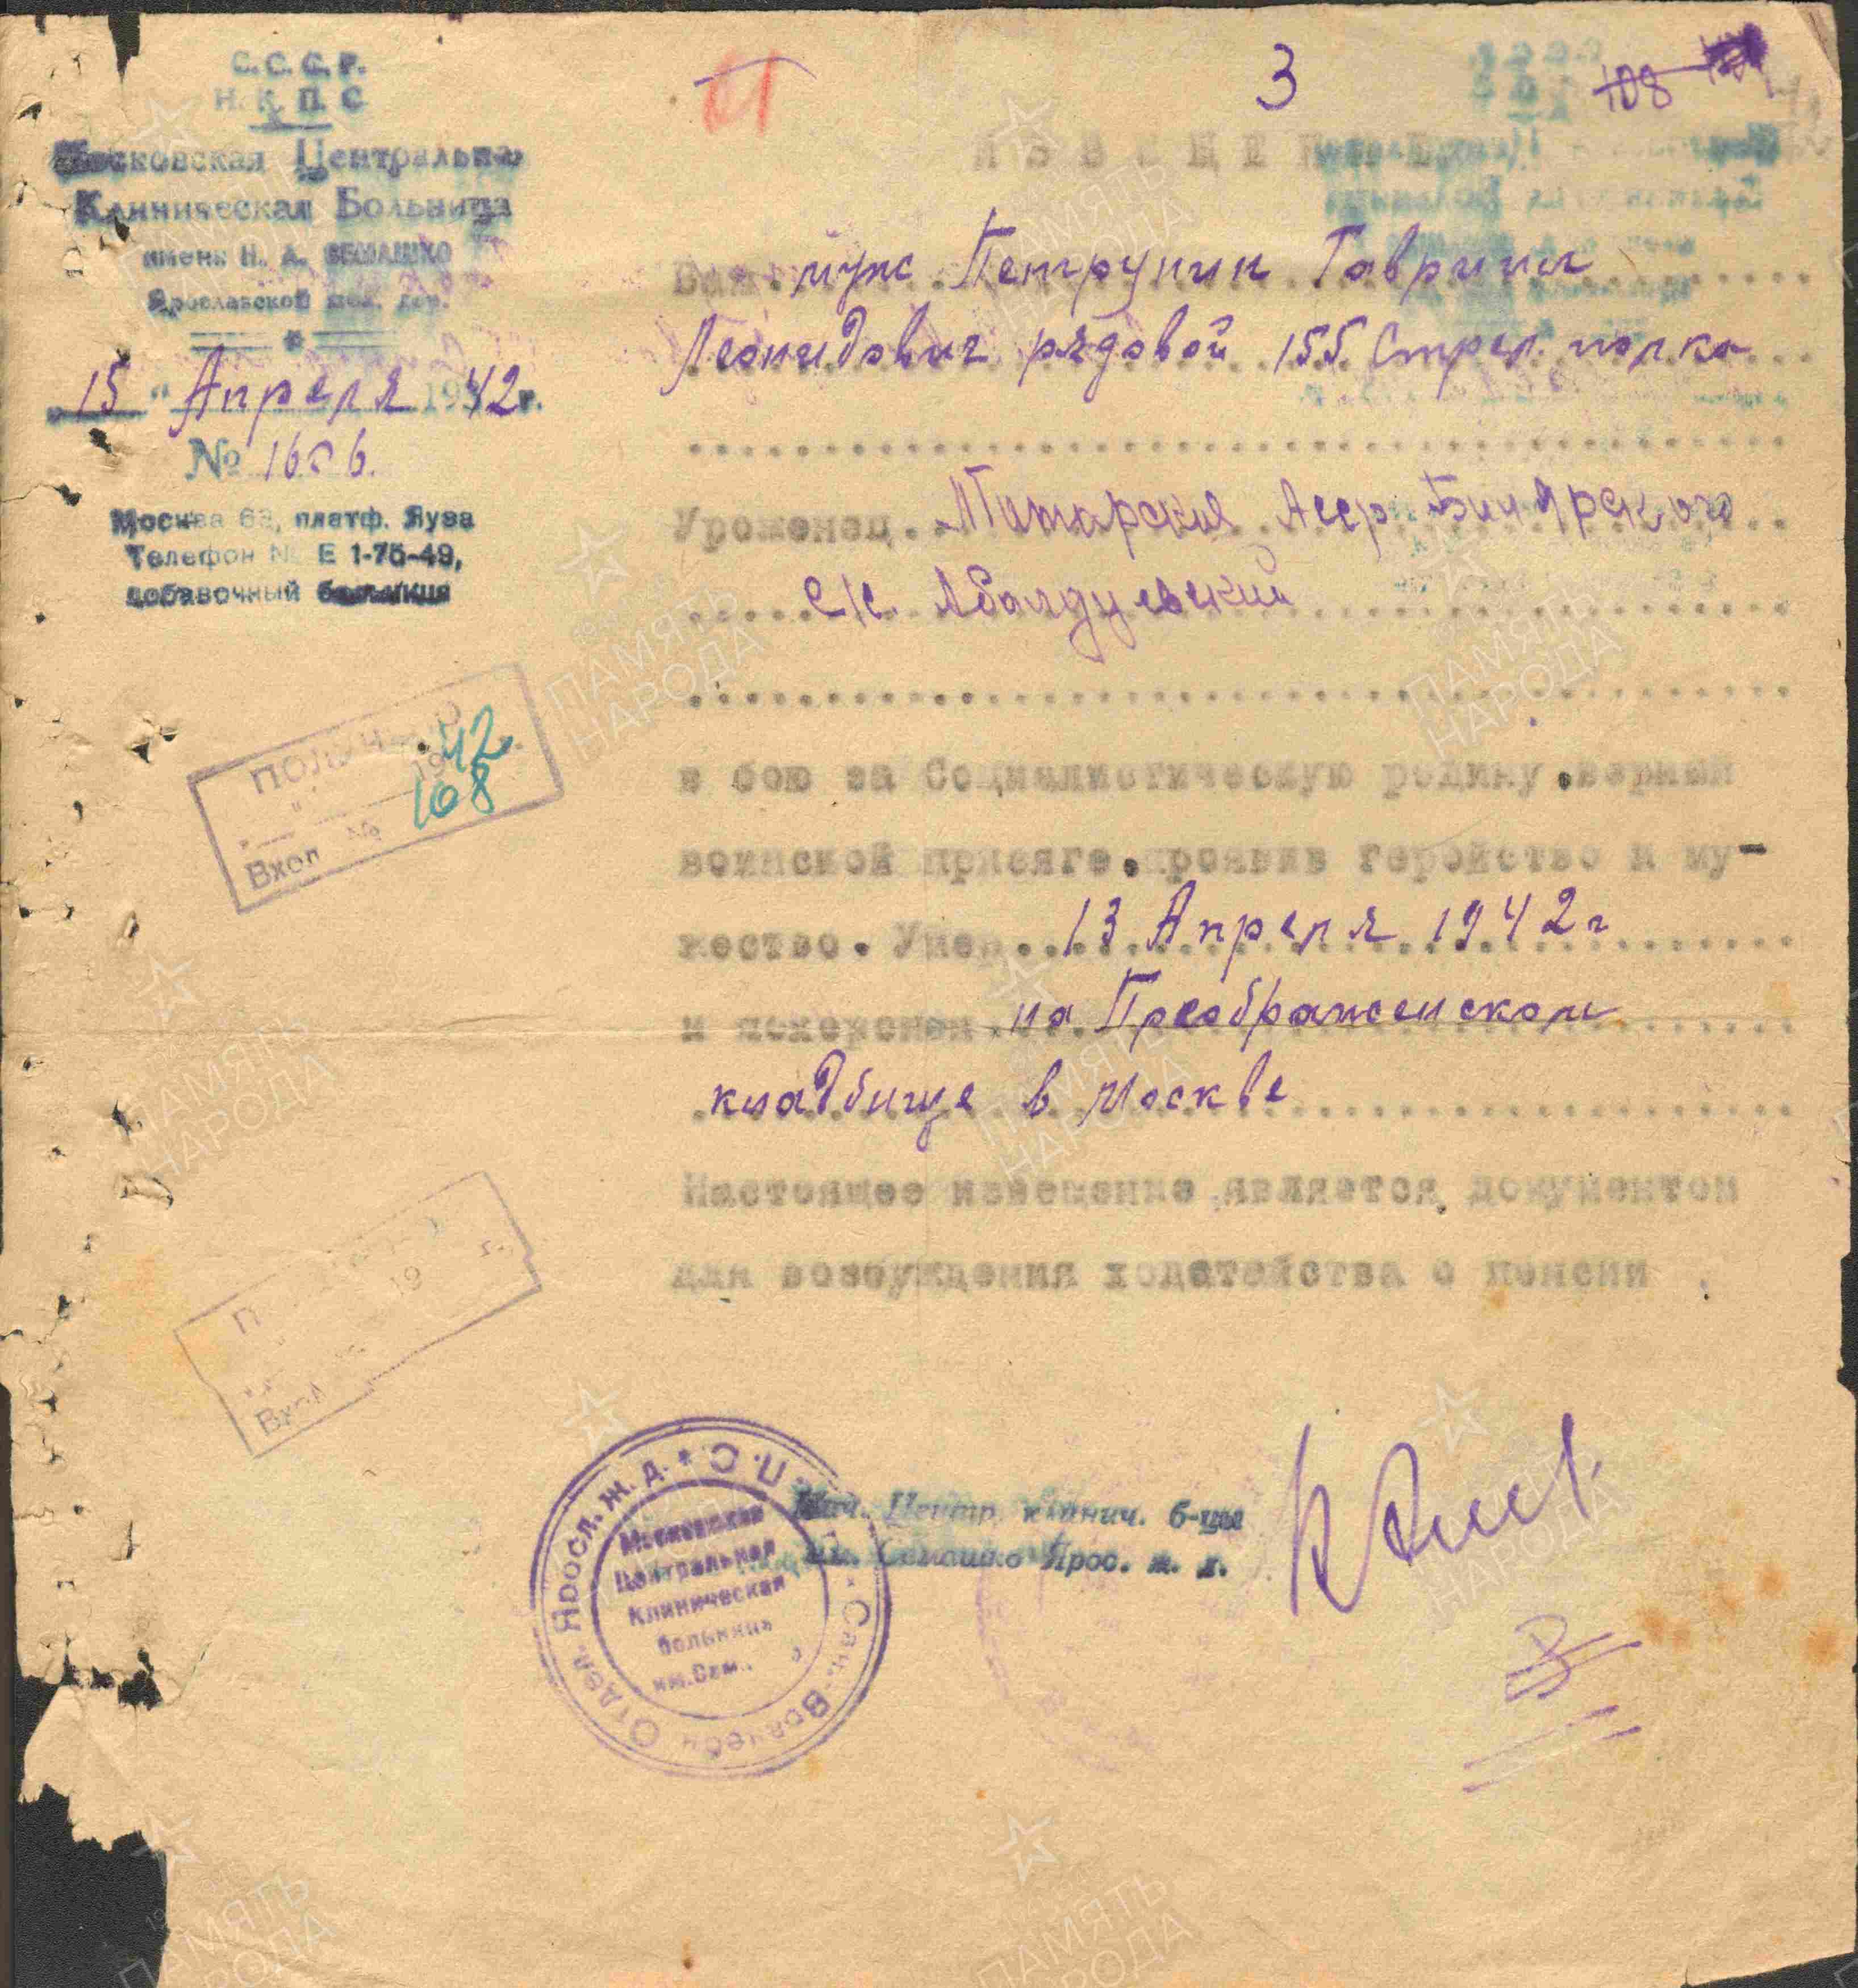 С. С. С. Р.
Н. К. П. С
Московская Центральная
Клиническая Больница
имени Н. А. СЕМАШКО
Ярославской жел. дор.
"15" Апреля 1942 г.
№ 1606.
Москва 68, платф. Яуза
Телефон № Е 1-75-49,
добавочный больница
3
108
ИЗВЕЩЕНИЕ
Ваш муж Петрунин Гавриил
Леонидович рядовой 155 Стрел. полка
Уроженец Татарская Асср Билярского
с/с. Абалдуевский
в бою за Социалистическую родину. верный
воинской присяге. проявив геройство и му-
жество. Умер 13 Апреля 1942 г
и похоронен на Преображенском
кладбище в Москве
Настоящее извещение является документом
для возбуждения ходатайства о пенсии
ПОЛУЧЕНО
1942 г.
Вход № 168
П
19 г.
Вход
Нач. Центр. клинич. б-цы
им. Семашко Ярос. ж. д.
Сан.-Врачебн Отдел. Яросл. ж. д. * Н.К.П.С.
Московская
Центральная
Клиническая
больница
им. Сем
ПАМЯТЬ
НАРОДА